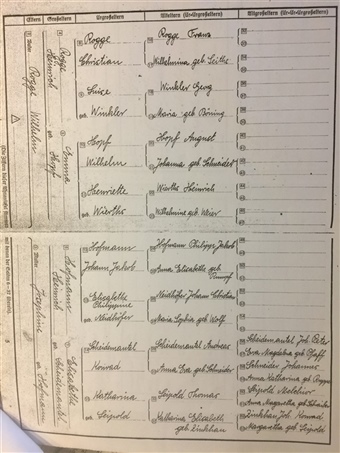 Eltern
Großeltern
Urgroßeltern
Alteltern (Ur-Urgroßeltern)
Altgroßeltern (Ur-Ur-Urgroßeltern)
Rogge
Wilhelm
Rogge
Heinrich
Emma
Hopf
Rogge
Christian
Luise
Winkler
Hopf
Wilhelm
Henriette
Wierths
Rogge Franz
Wilhelmina geb
Winkler Georg
Maria geb Böning
Hopf August
Johanna geb Schneider
Wierths Heinrich
Wilhelmine geb Meier
Josephine
Hofmann
Hofmann
Heinrich
Elisabetha
Scheidemantel
Hofmann
Johann Jakob
Elisabetha
Philippine
Neidhöfer
Scheidemantel
Konrad
Katharina
Leipold
Hofmann Philipp Jakob
Anna Elisabetha geb
Neidhöfer Johann Christian
Maria Sophia geb Wolf
Scheidemantel Andreas
Anna Eva geb Schneider
Leipold Thomas
Katharina Elisabeth
geb Zinkhan
Scheidemantel Joh Peter
Eva Magdalena geb Pfaff
Schneider Johannes
Anna Katharina geb
Leipold Melchior
Anna Margaretha geb
Zinkhan Joh Konrad
Margaretha geb Leipold